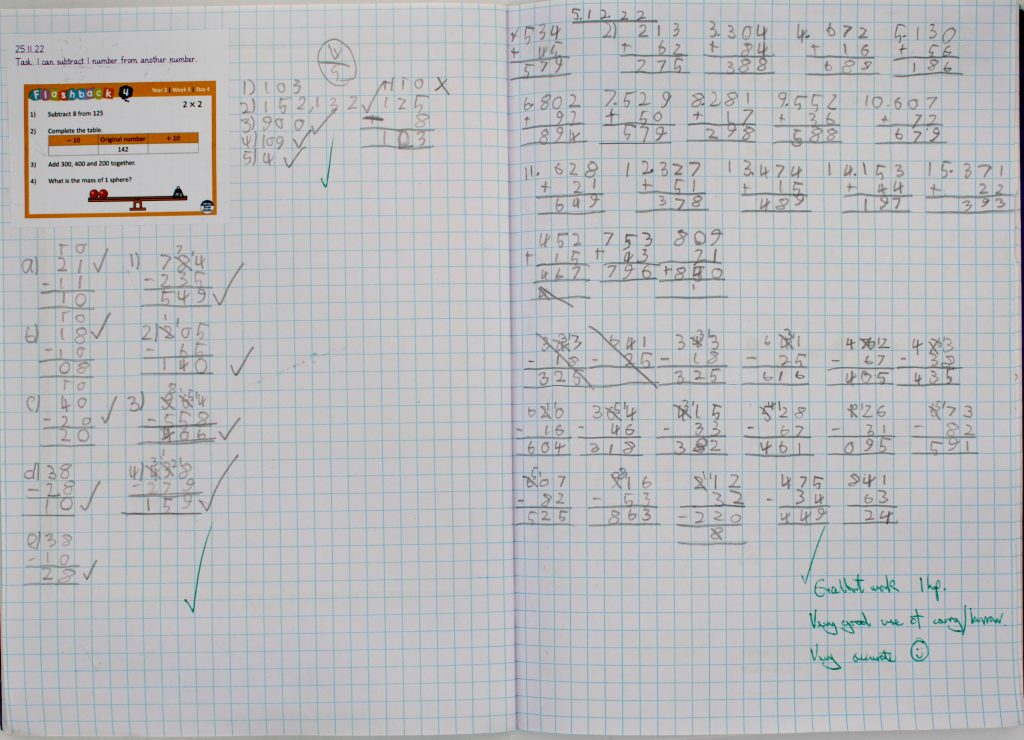 25.11.22
Task. I can subtract 1 number from another number.
Flashback 4
Year 3 | Week 5 | Day 4
2 × 2
1) Subtract 8 from 125
2) Complete the table.
− 10 Original number + 10
142
3) Add 300, 400 and 200 together.
4) What is the mass of 1 sphere?
4
5
1) 103
2) 152, 132
3) 900
4) 109
5) 4
110 X
125
- 8
103
a) 21
- 11
10
b) 18
- 10
08
c) 40
- 20
20
d) 38
- 28
10
e) 38
- 10
28
1) 784
- 235
549
2) 205
- 65
140
3)
- 558
406
4)
- 279
159
5.12.22
534
+ 45
579
2) 213
+ 62
275
3. 304
+ 84
388
4. 672
+ 16
688
5. 130
+ 56
186
6. 802
+ 92
894
7. 529
+ 50
579
8. 281
+ 17
298
9. 552
+ 36
588
10. 607
+ 72
679
11. 628
+ 21
649
12. 327
+ 51
378
13. 474
+ 15
489
14. 153
+ 44
197
15. 371
+ 22
393
452
+ 15
467
753
+ 43
796
809
21
+ 830
343
- 18
325
641
- 25
343
- 18
325
641
- 25
616
462
- 67
405
- 38
435
620
- 16
604
364
- 46
318
415
- 33
382
528
- 67
461
126
- 31
095
673
- 82
591
607
- 82
525
916
- 53
863
212
32
- 220
8
475
- 34
449
841
63
24
Excellent work 1hp.
Very good use of carry/borrow.
Very accurate